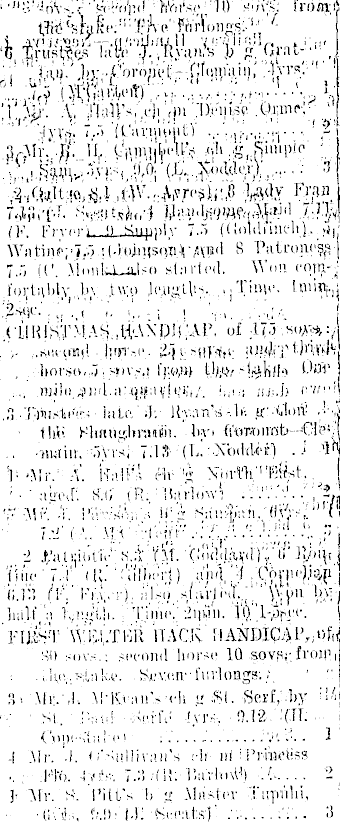 sovs.; second horse 10 sovs. from
the stake. Five furlongs.
6 Trustees late J. Ryan's b g Grat-
tan, by Coronet—Clemain, 4yrs,
7.5 (McCarten) 1
1 Mr. A. Hall's ch m Denise Orme,
4yrs, 7.5 (Carmont) 2
3 Mr. B. H. Campbell's ch g Simple
Sam, 5yrs, 9.0 (L. Nodder) 3
2 8.1 (W. Ayres), 8 Lady Fran
(J. 4 Handsome Maid 7.11
(F. Fryer), 9 Supply 7.5 (Goldfinch),
Watine 7.5 (Johnson) and 8 Patroness
7.5 (C. Monk) also started. Won com-
fortably by two lengths. Time, 1min.
2sec.
CHRISTMAS HANDICAP, of 175 sovs.;
second horse 25 sovs. and third
horse 5 sovs. from the stake. One
mile and a quarter.
3 Trustees late J. Ryan's b g
the Shaughraun, by Coronet—Cle-
main, 5yrs, 7.13 (L. Nodder)
1 Mr. A. Hall's ch g North East,
aged, 8.6 (R. Barlow)
Mr. J. b g Sampan, 6yrs,
7.2
2 Patriotic 8.3 (M. Goddard), 6
7.1 (R. Gilbert) and 4 Cornelian
6.13 (F. Fryer) also started. Won by
half a length. Time, 2min. 10 1-5sec.
FIRST WELTER HACK HANDICAP, of
80 sovs.; second horse 10 sovs. from
the stake. Seven furlongs.
3 Mr. J. McKean's ch g St. Serf, by
St. 4yrs, 9.12 (H.
1
4 Mr. J. O'Sullivan's ch m Princess
Flo, 4yrs, 7.3 (R. Barlow) 2
1 Mr. S. Pitt's b g Master Tupuhi,
6yrs, 9.9 (J. Sceats) 3